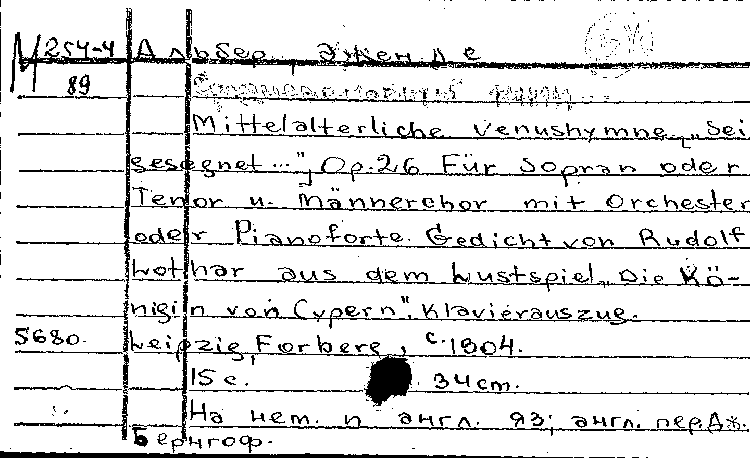 М 254-4 Альбер, Эжен де
89
Mittelalterliche Venushymne „Sei
gesegnet...", Op.26 Für Sopran oder
Tenor u. Männerchor mit Orchester
oder Pianoforte. Gedicht von Rudolf
Lothar aus dem Lustspiel „Die Kö-
nigin von Cypern". Klavierauszug.
5680. Leipzig, Forberg, c.1904.
15 с. 34 cm.
На нем. и англ. яз; англ. пер Дж.
Бернгоф.